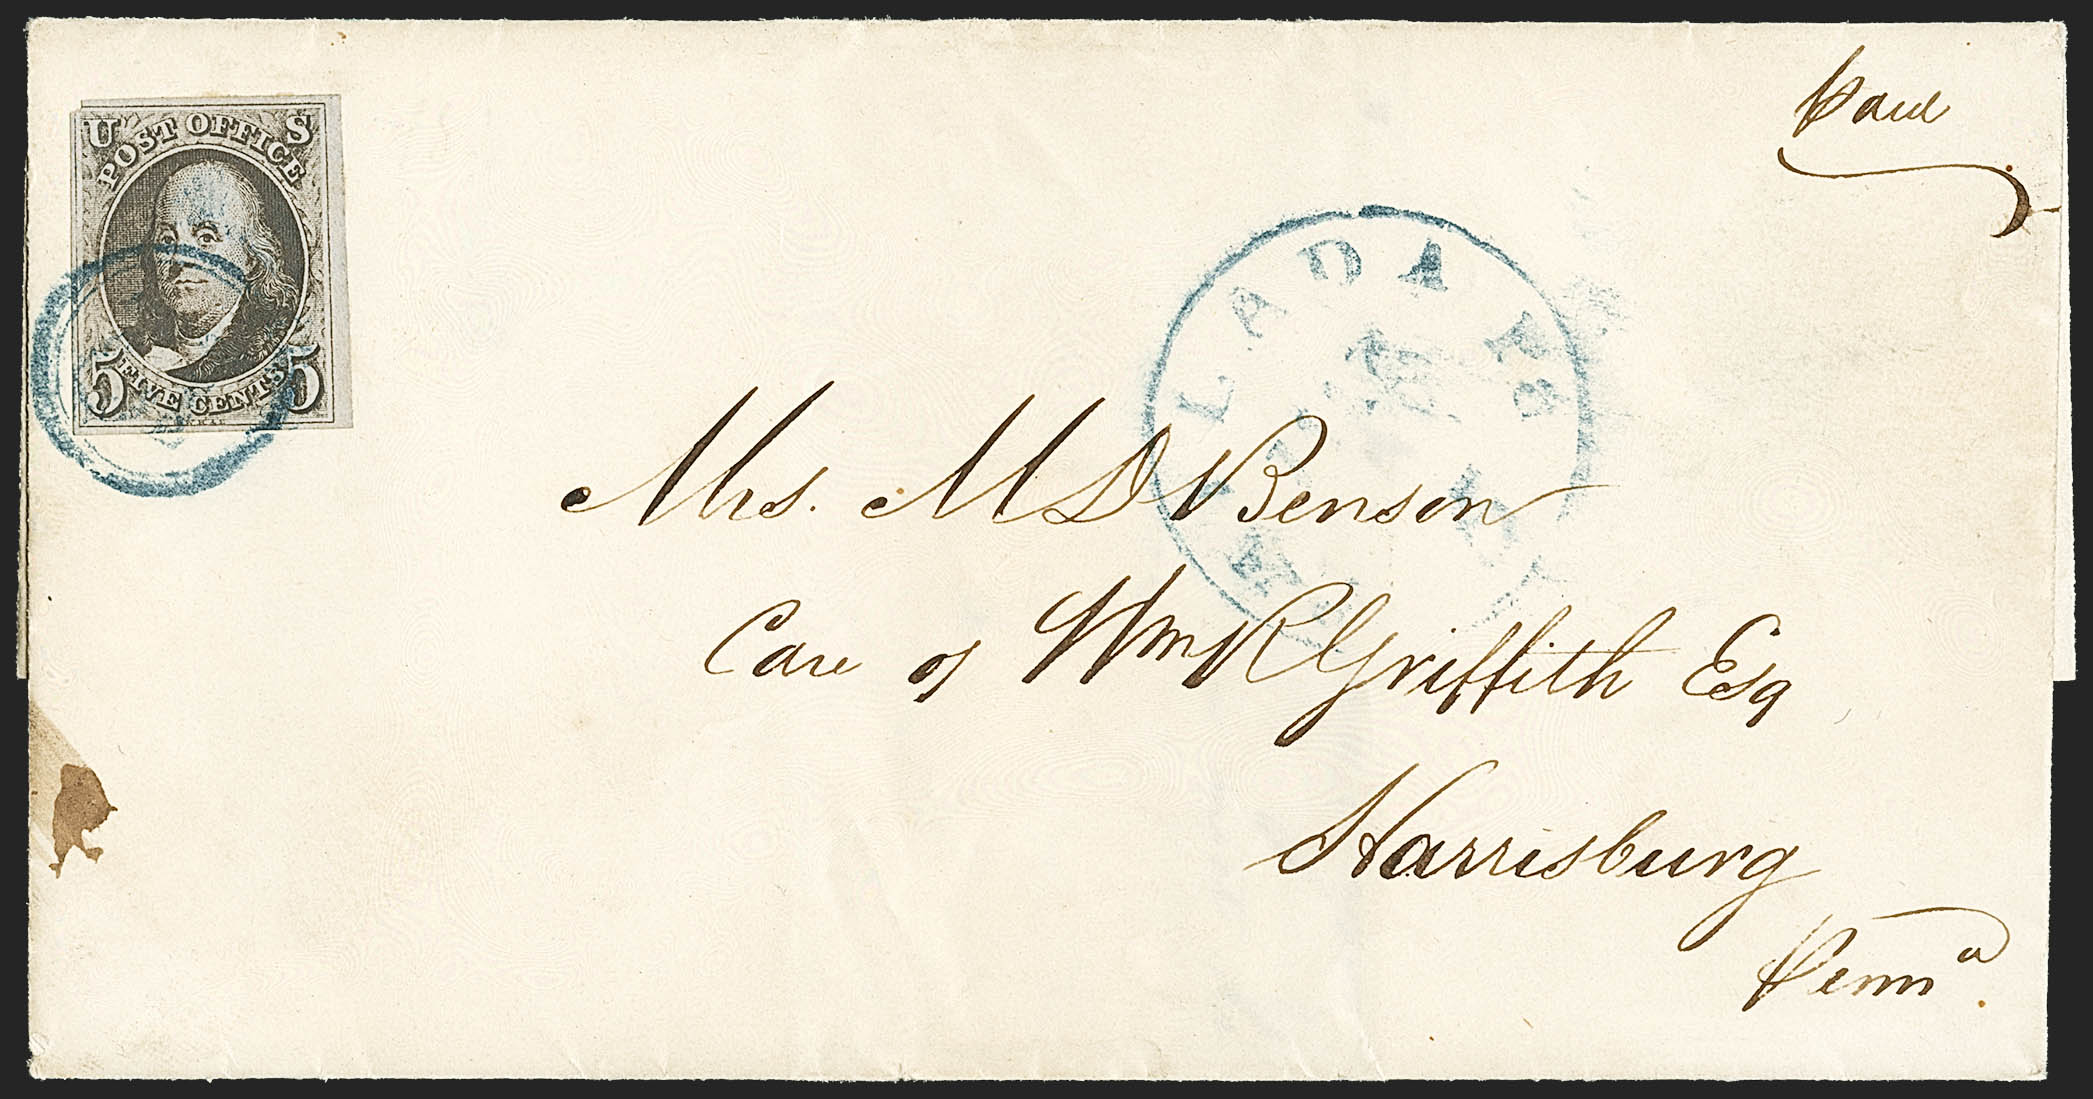 U S
POST OFFICE
5 FIVE CENTS 5
Paid
Mrs. M D Benson
Care of Wm R Griffith Esq
Harrisburg
Penna.